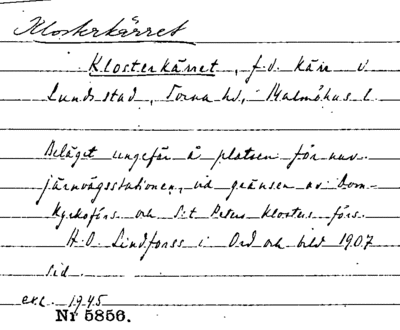 Klosterkärret
Klosterkärret, f.d. kärr v.
Lunds stad, Torna hd, Malmöhus l.
Beläget ungefär å platsen för nuv.
järnvägsstationen, vid gränsen av Dom-
kyrkoförs. och S:t Peters Klosters förs.
H.O. Lindforss i Ord och bild 1907
sid.
exc. 1945
Nr 5856.